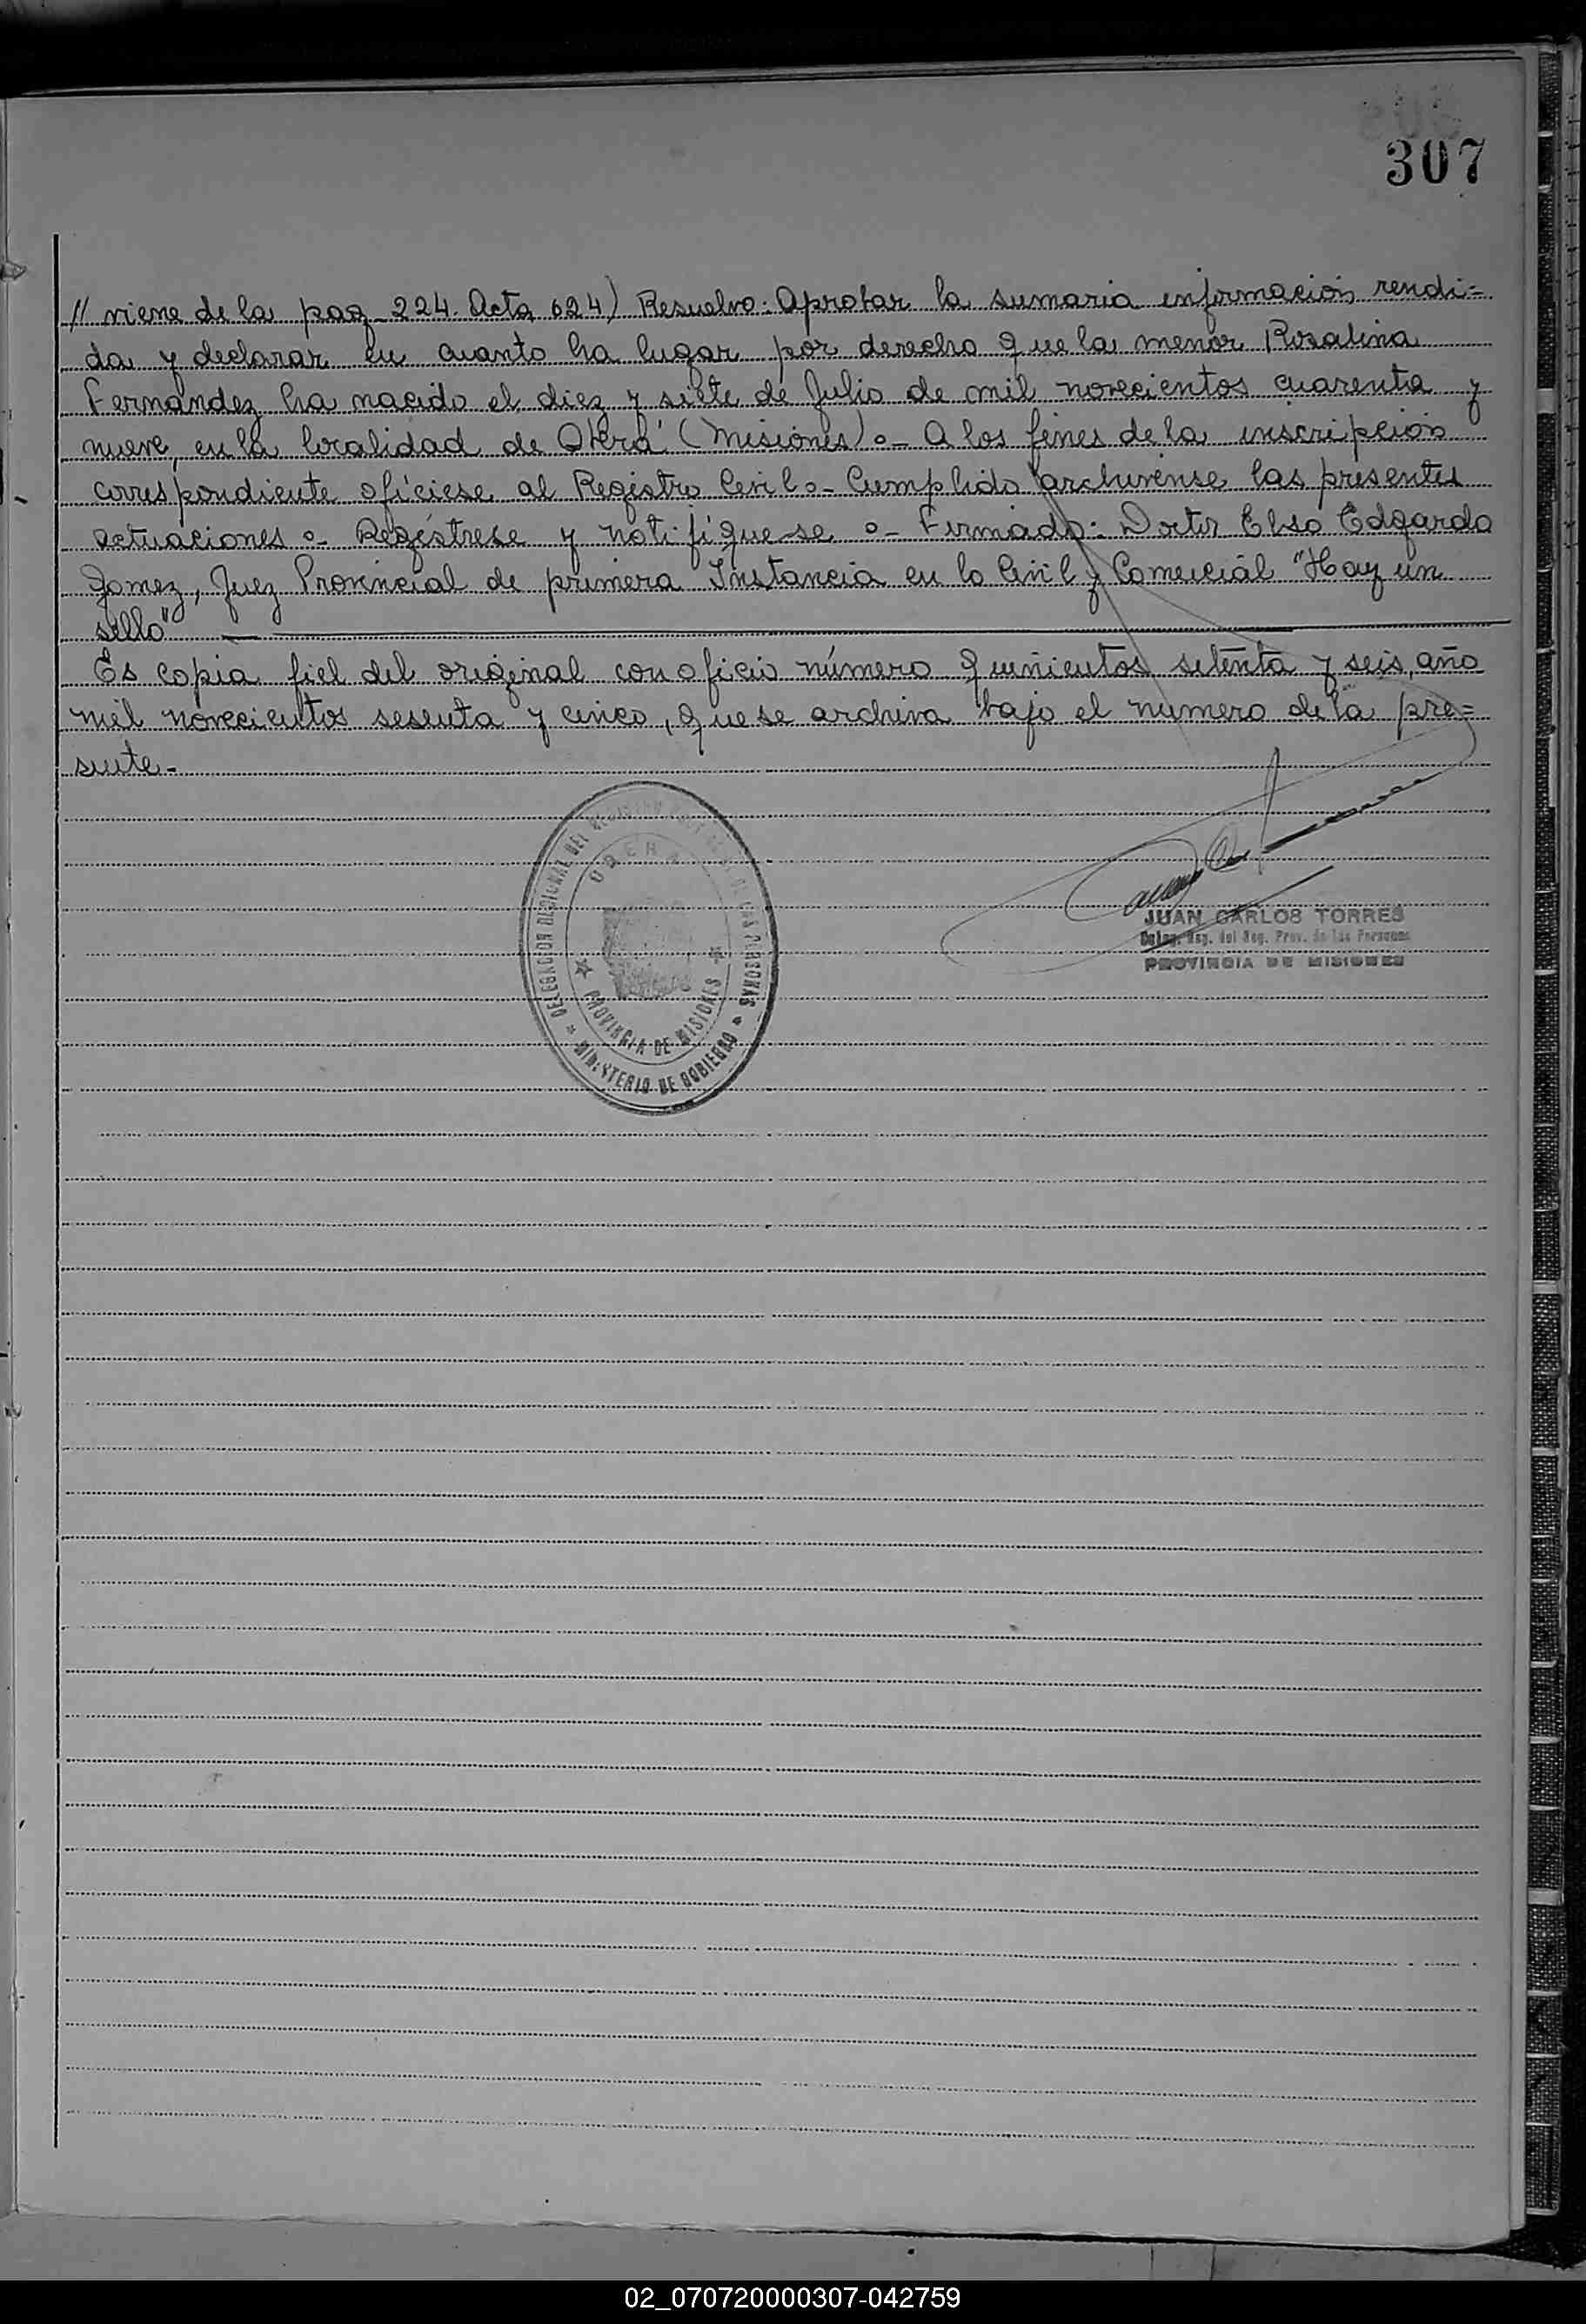 307
// viene de la pag. 224. Acta 624) Resuelvo: Aprobar la sumaria información rendi=
da y declarar en cuanto ha lugar por derecho que la menor Rosalina
Fernández ha nacido el diez y siete de Julio de mil novecientos cuarenta y
nueve, en la localidad de Oberá (Misiones).- A los fines de la inscripción
correspondiente ofíciese al Registro Civil.- Cumplido archívense las presentes
actuaciones.- Regístrese y notifíquese.- Firmado: Doctor Elso Edgardo
Gomez, Juez Provincial de primera Instancia en lo Civil y Comercial "Hay un
sello"
Es copia fiel del original con oficio número quinientos setenta y seis, año
mil novecientos sesenta y cinco, que se archiva bajo el número de la pre=
sente.-
DELEGACION REGIONAL DEL REGISTRO DE LAS PERSONAS
OBERA
PROVINCIA DE MISIONES
MINISTERIO DE GOBIERNO
JUAN CARLOS TORRES
Deleg. Reg. del Reg. Prov. de las Personas
PROVINCIA DE MISIONES
02_070720000307-042759